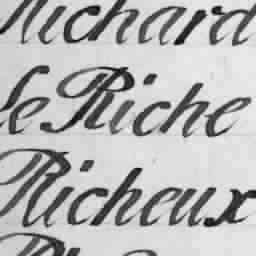 Richard
le Riche
Richeux